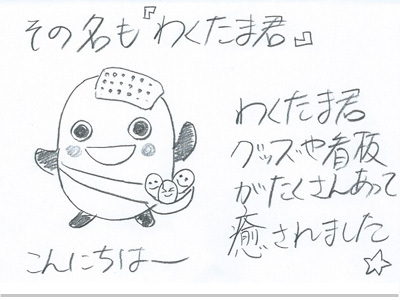 その名も『わくたま君』
わくたま君
グッズや看板
がたくさんあって
癒されました
☆
こんにちはー